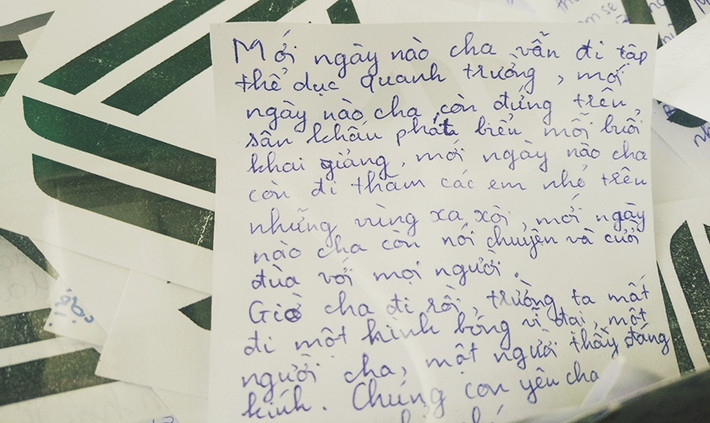 Mới ngày nào cha vẫn đi tập
thể dục quanh trường, mới
ngày nào cha còn đứng trên
sân khấu phát biểu mỗi buổi
khai giảng, mới ngày nào cha
còn đi thăm các em nhỏ trên
những vùng xa xôi, mới ngày
nào cha còn nói chuyện và cười
đùa với mọi người.
Giờ cha đi rồi, trường ta mất
đi một hình bóng vĩ đại, một
người cha, một người thầy đáng
kính. Chúng con yêu cha